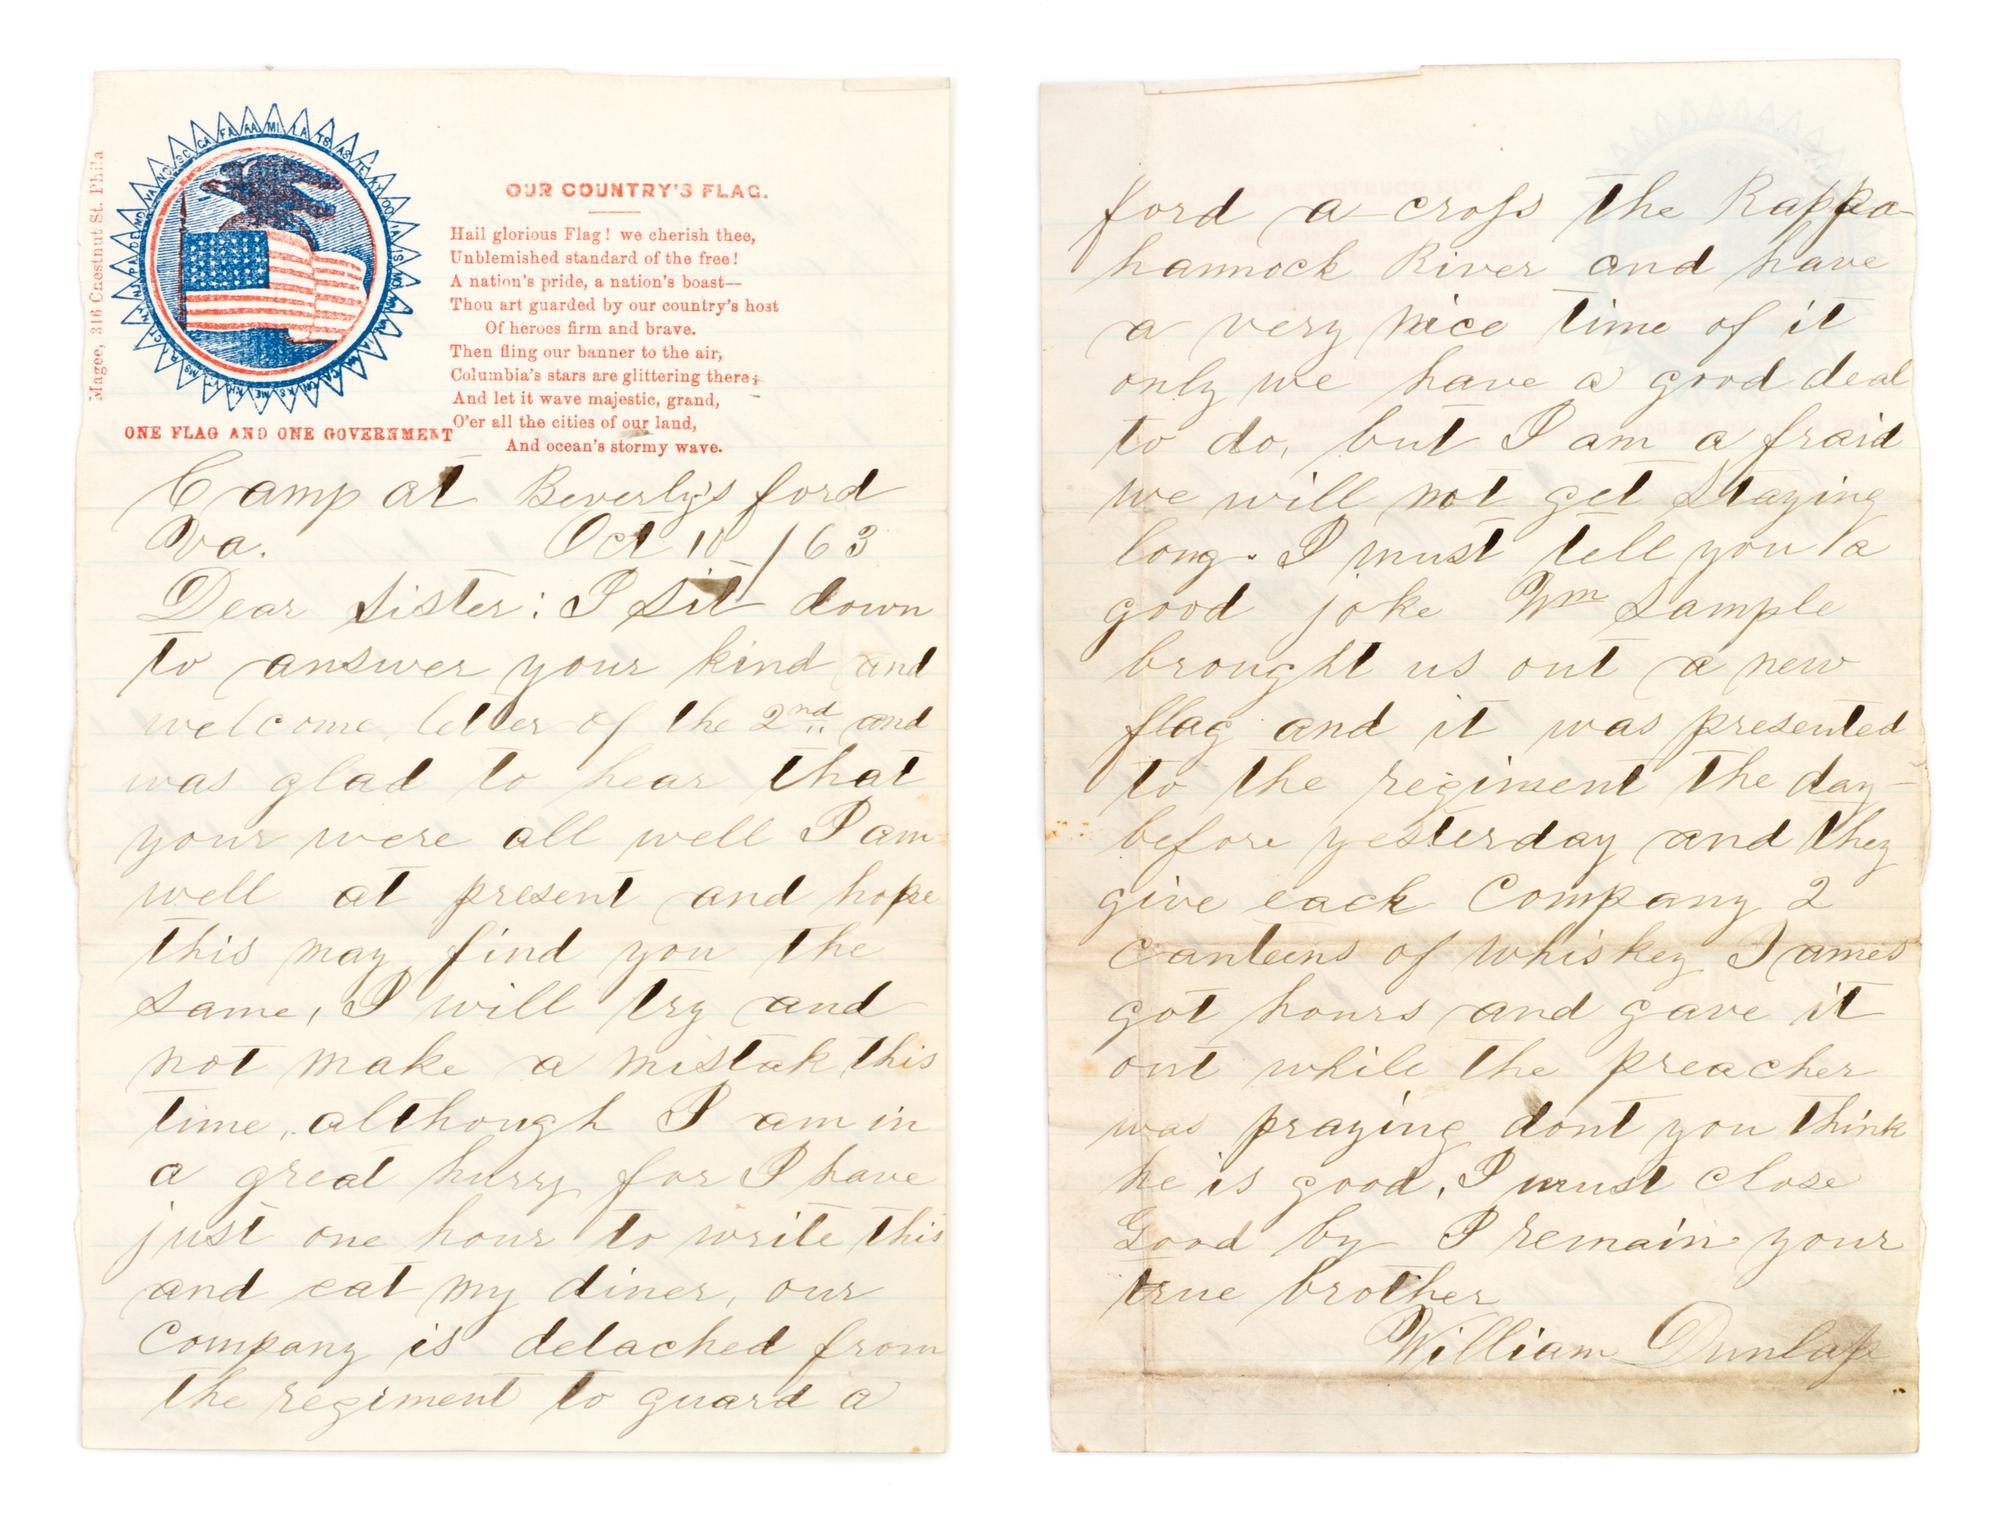 Magee, 316 Chestnut St. Phila
ONE FLAG AND ONE GOVERNMENT
OUR COUNTRY'S FLAG.
Hail glorious Flag! we cherish thee,
Unblemished standard of the free!
A nation's pride, a nation's boast—
Thou art guarded by our country's host
Of heroes firm and brave.
Then fling our banner to the air,
Columbia's stars are glittering there;
And let it wave majestic, grand,
O'er all the cities of our land,
And ocean's stormy wave.
Camp at Beverly's ford
Va. Oct 10 /63
Dear Sister: I sit down
to answer your kind and
welcome letter of the 2nd and
was glad to hear that
your were all well I am
well at present and hope
this may find you the
same, I will try and
not make a mistak this
time, although I am in
a great hurry for I have
just one hour to write this
and eat my diner, our
Company is detached from
the regiment to guard a
ford a cross the Rappa-
hannock River and have
a very nice time of it
only we have a good deal
to do, but I am a fraid
we will not get staying
long. I must tell you a
good joke Wm Sample
brought us out a new
flag and it was presented
to the regiment the day-
before yesterday and they
give each Company 2
canteens of whiskey James
got hours and gave it
out while the preacher
was praying dont you think
he is good, I must close
Good by I remain your
true brother
William Dunlap